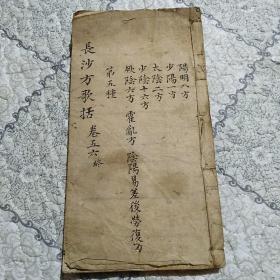 陽明八方
少陽一方
太陰二方
少陰十六方
厥陰六方 霍亂方 陰陽易差後勞復方
第五種
長沙方歌括 卷五六終